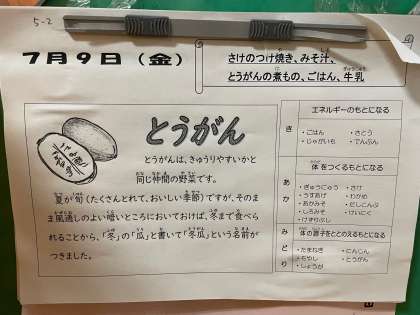 5-2
7月9日(金)
さけのつけ焼き、みそ汁、
とうがんの煮もの、ごはん、牛乳
とうがん
とうがんは、きゅうりやすいかと
同じ仲間の野菜です。
夏が旬(たくさんとれて、おいしい季節)ですが、そのま
ま風通しのよい暗いところにおいておけば、冬まで食べら
れることから、「冬」の「瓜」と書いて「冬瓜」という名前が
つきました。
き
エネルギーのもとになる
・ごはん ・さとう
・じゃがいも ・でんぷん
あか
体をつくるもとになる
・ぎゅうにゅう ・さけ
・うすあげ ・わかめ
・あかみそ ・だしこんぶ
・しろみそ ・けいにく
・けずりぶし
みどり
体の調子をととのえるもとになる
・たまねぎ ・にんじん
・もやし ・とうがん
・しょうが